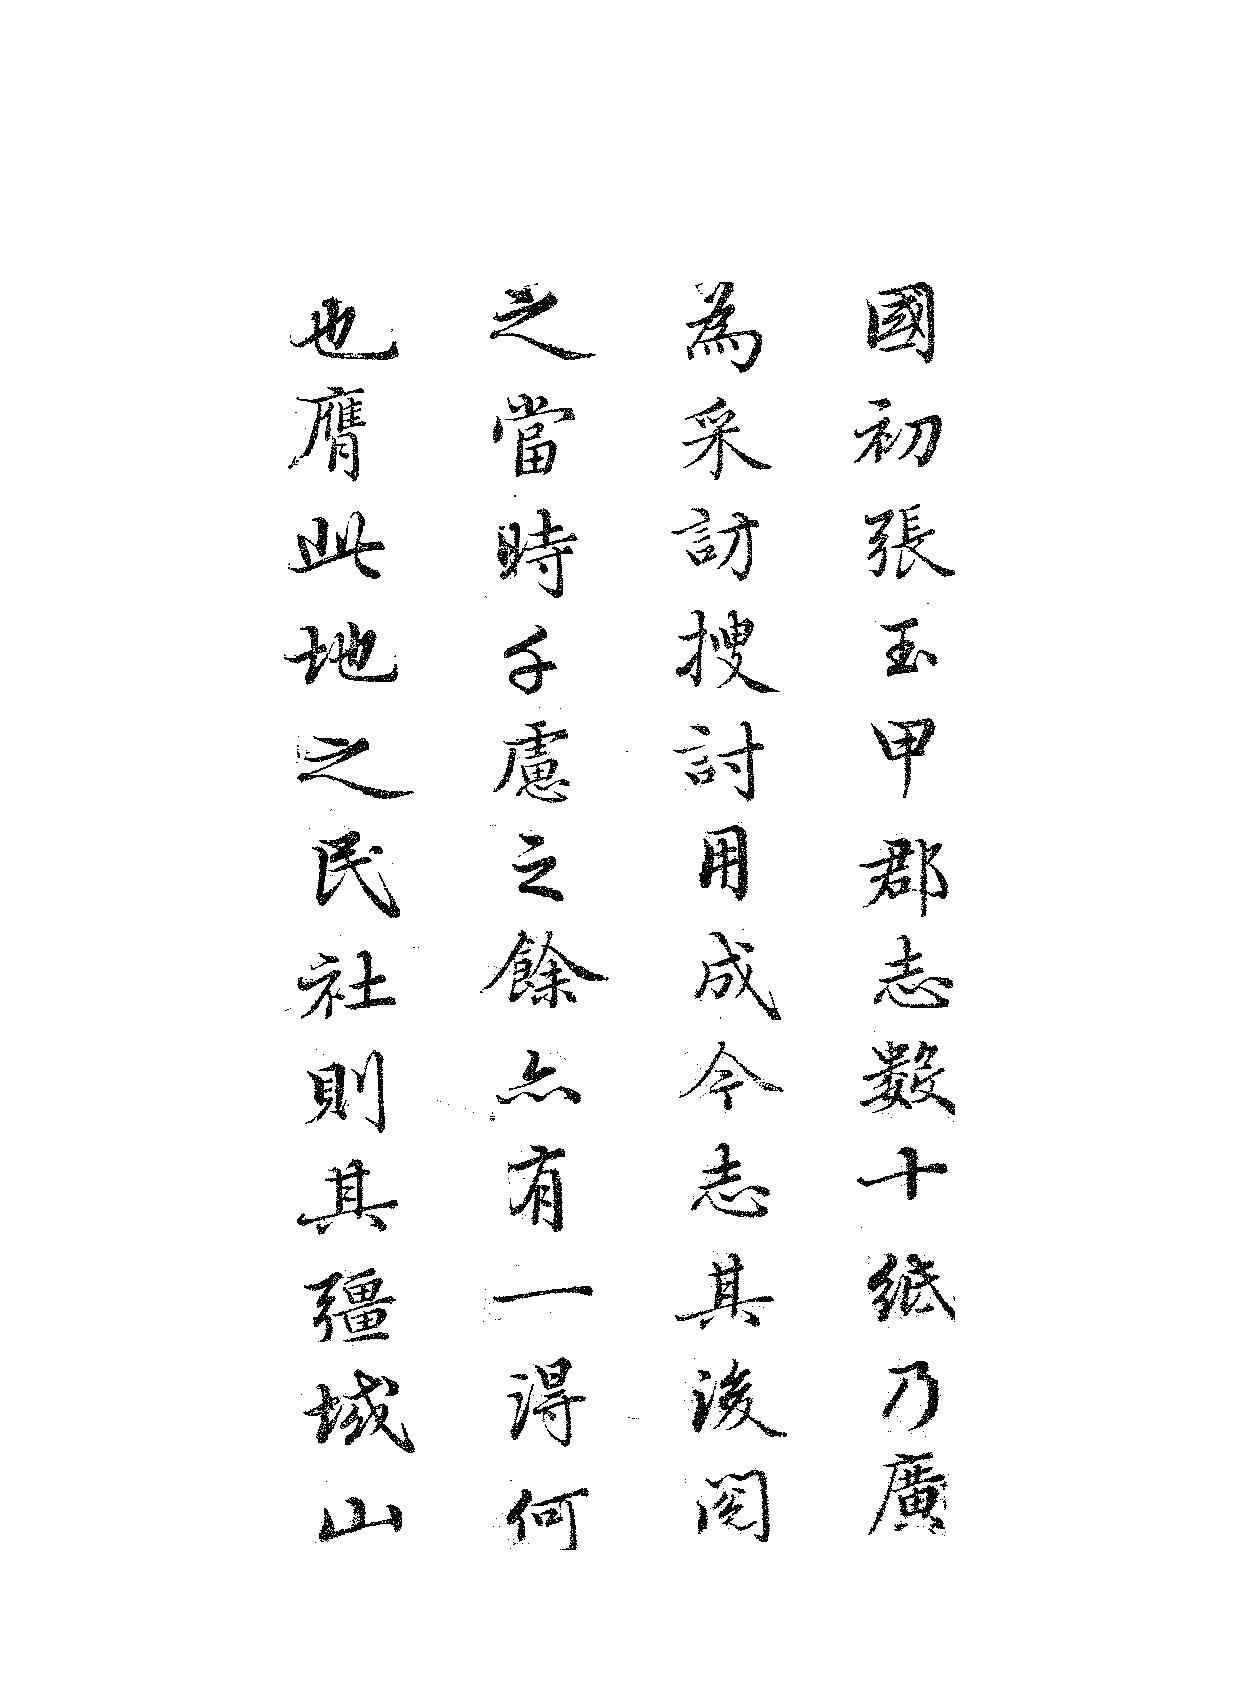 國初張玉甲郡志數十紙乃廣
為采訪搜討用成今志其後閱
之當時千慮之餘亦有一得何
也膺此地之民社則其疆域山